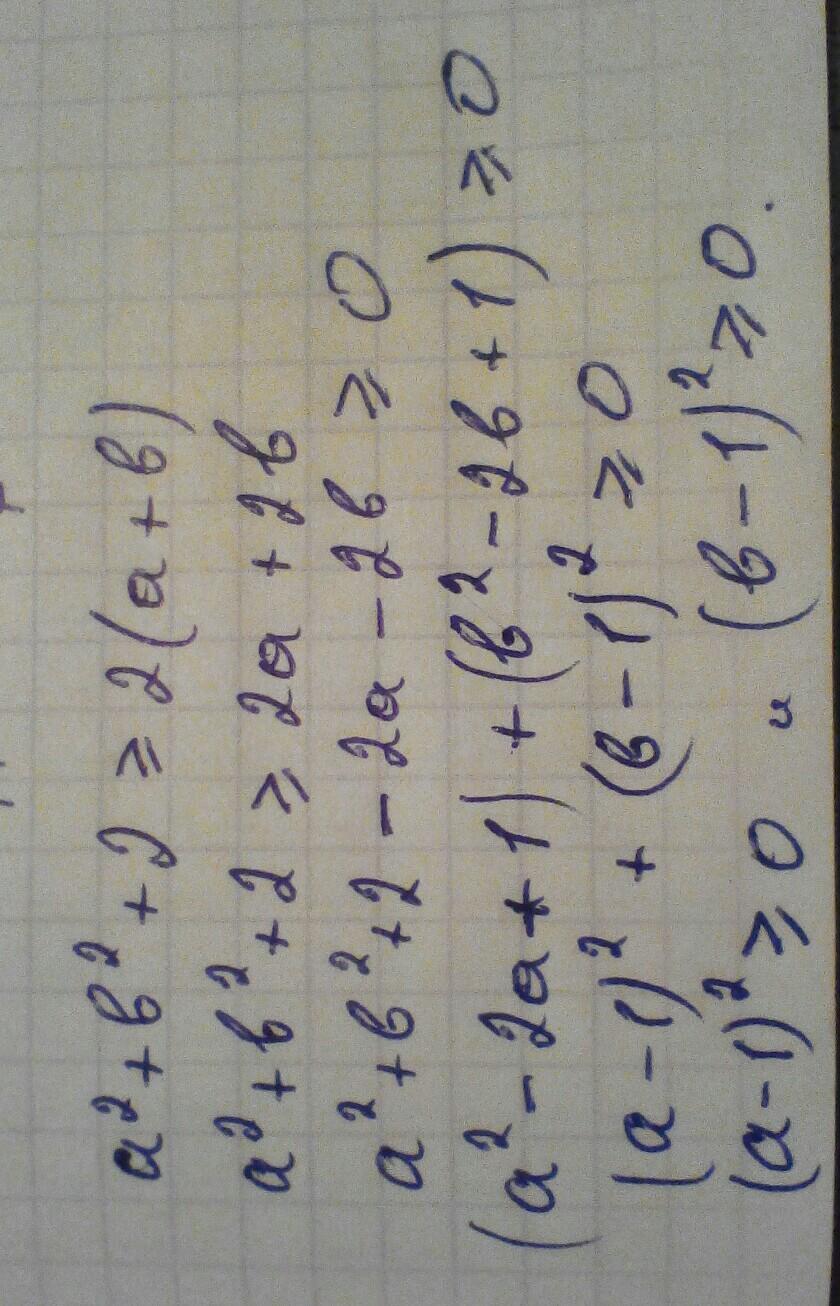 a² + b² + 2 ⩾ 2(a + b)
a² + b² + 2 ⩾ 2a + 2b
a² + b² + 2 - 2a - 2b ⩾ 0
(a² - 2a + 1) + (b² - 2b + 1) ⩾ 0
(a - 1)² + (b - 1)² ⩾ 0
(a - 1)² ⩾ 0 и (b - 1)² ⩾ 0.